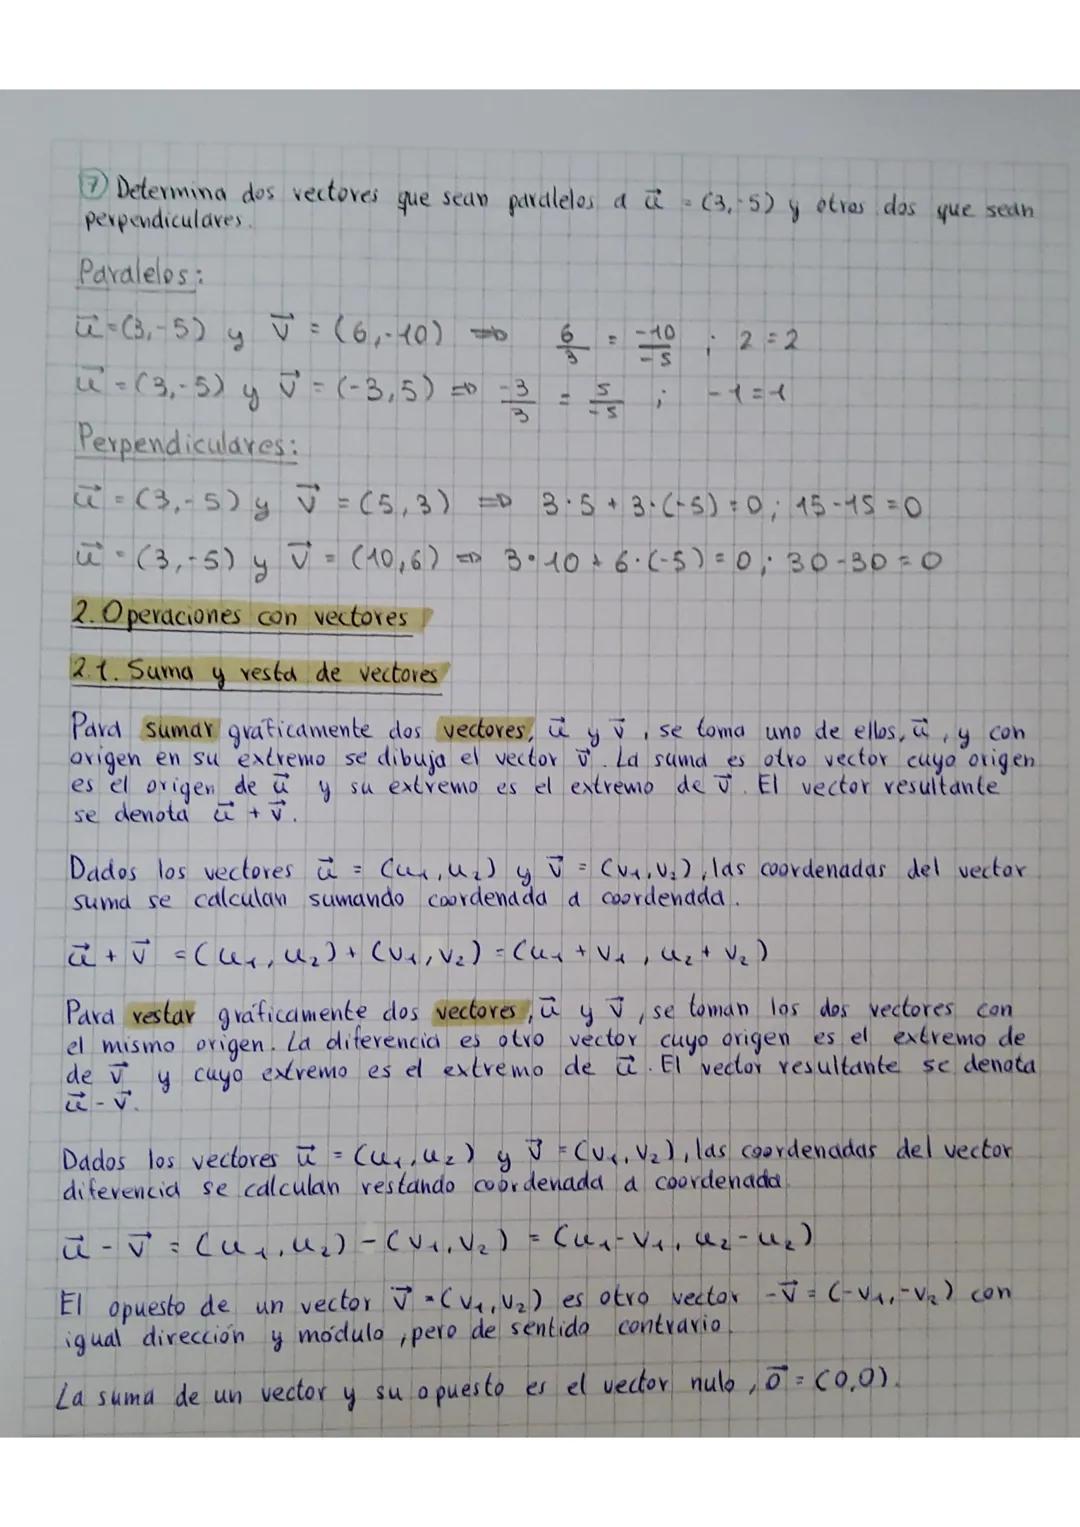 7 Determina dos vectores que sean paralelos a u⃗ = (3,-5) y otros dos que sean
perpendiculares.
Paralelos:
u⃗ = (3,-5) y v⃗ = (6,-10) ⇒ 6/3 = -10/-5 ; 2 = 2
u⃗ = (3,-5) y v⃗ = (-3,5) ⇒ -3/3 = 5/-5 ; -1 = -1
Perpendiculares:
u⃗ = (3,-5) y v⃗ = (5,3) ⇒ 3·5 + 3·(-5) = 0; 15-15 = 0
u⃗ = (3,-5) y v⃗ = (10,6) ⇒ 3·10 + 6·(-5) = 0; 30-30 = 0
2. Operaciones con vectores
2.1. Suma y resta de vectores
Para sumar gráficamente dos vectores, u⃗ y v⃗, se toma uno de ellos, u⃗, y con
origen en su extremo se dibuja el vector v⃗. La suma es otro vector cuyo origen
es el origen de u⃗ y su extremo es el extremo de v⃗. El vector resultante
se denota u⃗ + v⃗.
Dados los vectores u⃗ = (u₁,u₂) y v⃗ = (v₁,v₂), las coordenadas del vector
suma se calculan sumando coordenada a coordenada.
u⃗ + v⃗ = (u₁,u₂) + (v₁,v₂) = (u₁ + v₁, u₂ + v₂)
Para restar gráficamente dos vectores, u⃗ y v⃗, se toman los dos vectores con
el mismo origen. La diferencia es otro vector cuyo origen es el extremo de
de v⃗ y cuyo extremo es el extremo de u⃗. El vector resultante se denota
u⃗ - v⃗.
Dados los vectores u⃗ = (u₁,u₂) y v⃗ = (v₁,v₂), las coordenadas del vector
diferencia se calculan restando coordenada a coordenada.
u⃗ - v⃗ = (u₁,u₂) - (v₁,v₂) = (u₁-v₁, u₂-u₂)
El opuesto de un vector v⃗ = (v₁,v₂) es otro vector -v⃗ = (-v₁,-v₂) con
igual dirección y módulo, pero de sentido contrario.
La suma de un vector y su opuesto es el vector nulo, 0⃗ = (0,0).